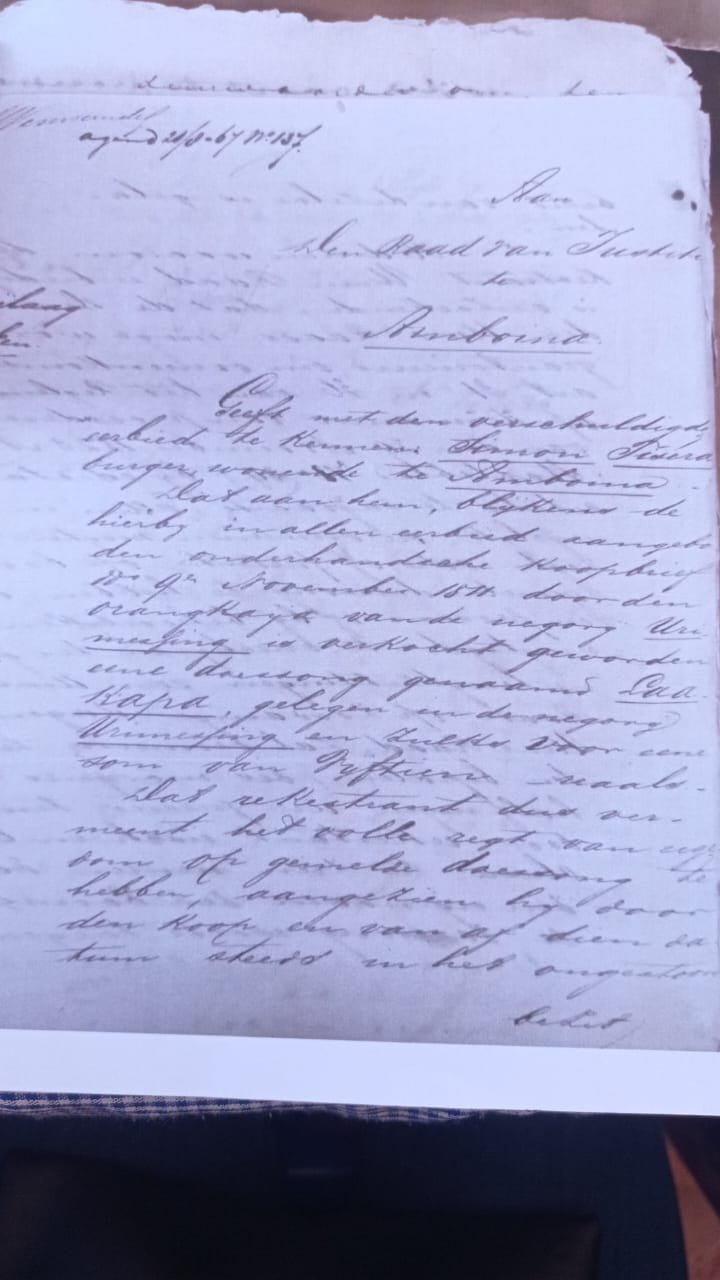 agend 21/8-67 No 137.
Aan
Den Raad van Justiti
te
Amboina
Geeft met den verschuldigd
eerbied te kennen Simon Tisera
burger, wonende te Amboina.
Dat aan hem, blijkens de
hierby in allen eerbied aangebo
den onderhandsche koopbrief
do 9n November 18 door den
orangkaya van de negory Uri
messing is verkocht geworden
eene doessong genaamd Laa-
Kapa, gelegen in de negory
Urimessing en zulks voor eene
som van Vyftien reaals.
Dat rekestrant dus ver-
meent het volle regt van eige
dom op gemelde doessong te
hebben, aangezien hy door
den koop en van af dien da
tum steeds in het ongestoor
bezit